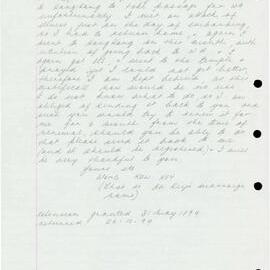 to Sangtang to take passage for wa
unfortunately I met an attack of
illness just on the day of embarking,
so I had to return home, again I
went to Sangtang on this month, with
intention of going back to
again get ill, I went to the temple &
prayed, yet I could not get better,
therefore I am kept behind. As this
certificate has would be no use
I do not know what to do so I am
obliged of sending it back to you and
wish you would try to renew it for
me for 6 months, from the time of
renewal, should you be able to do
that please send it back to me
(and it should be registered) & I will
be very thankful to you.
Yours etc
Wong Kow Key
(What is do Keys marriage
name)
Extension granted 31 May 1894
returned 26.10.94